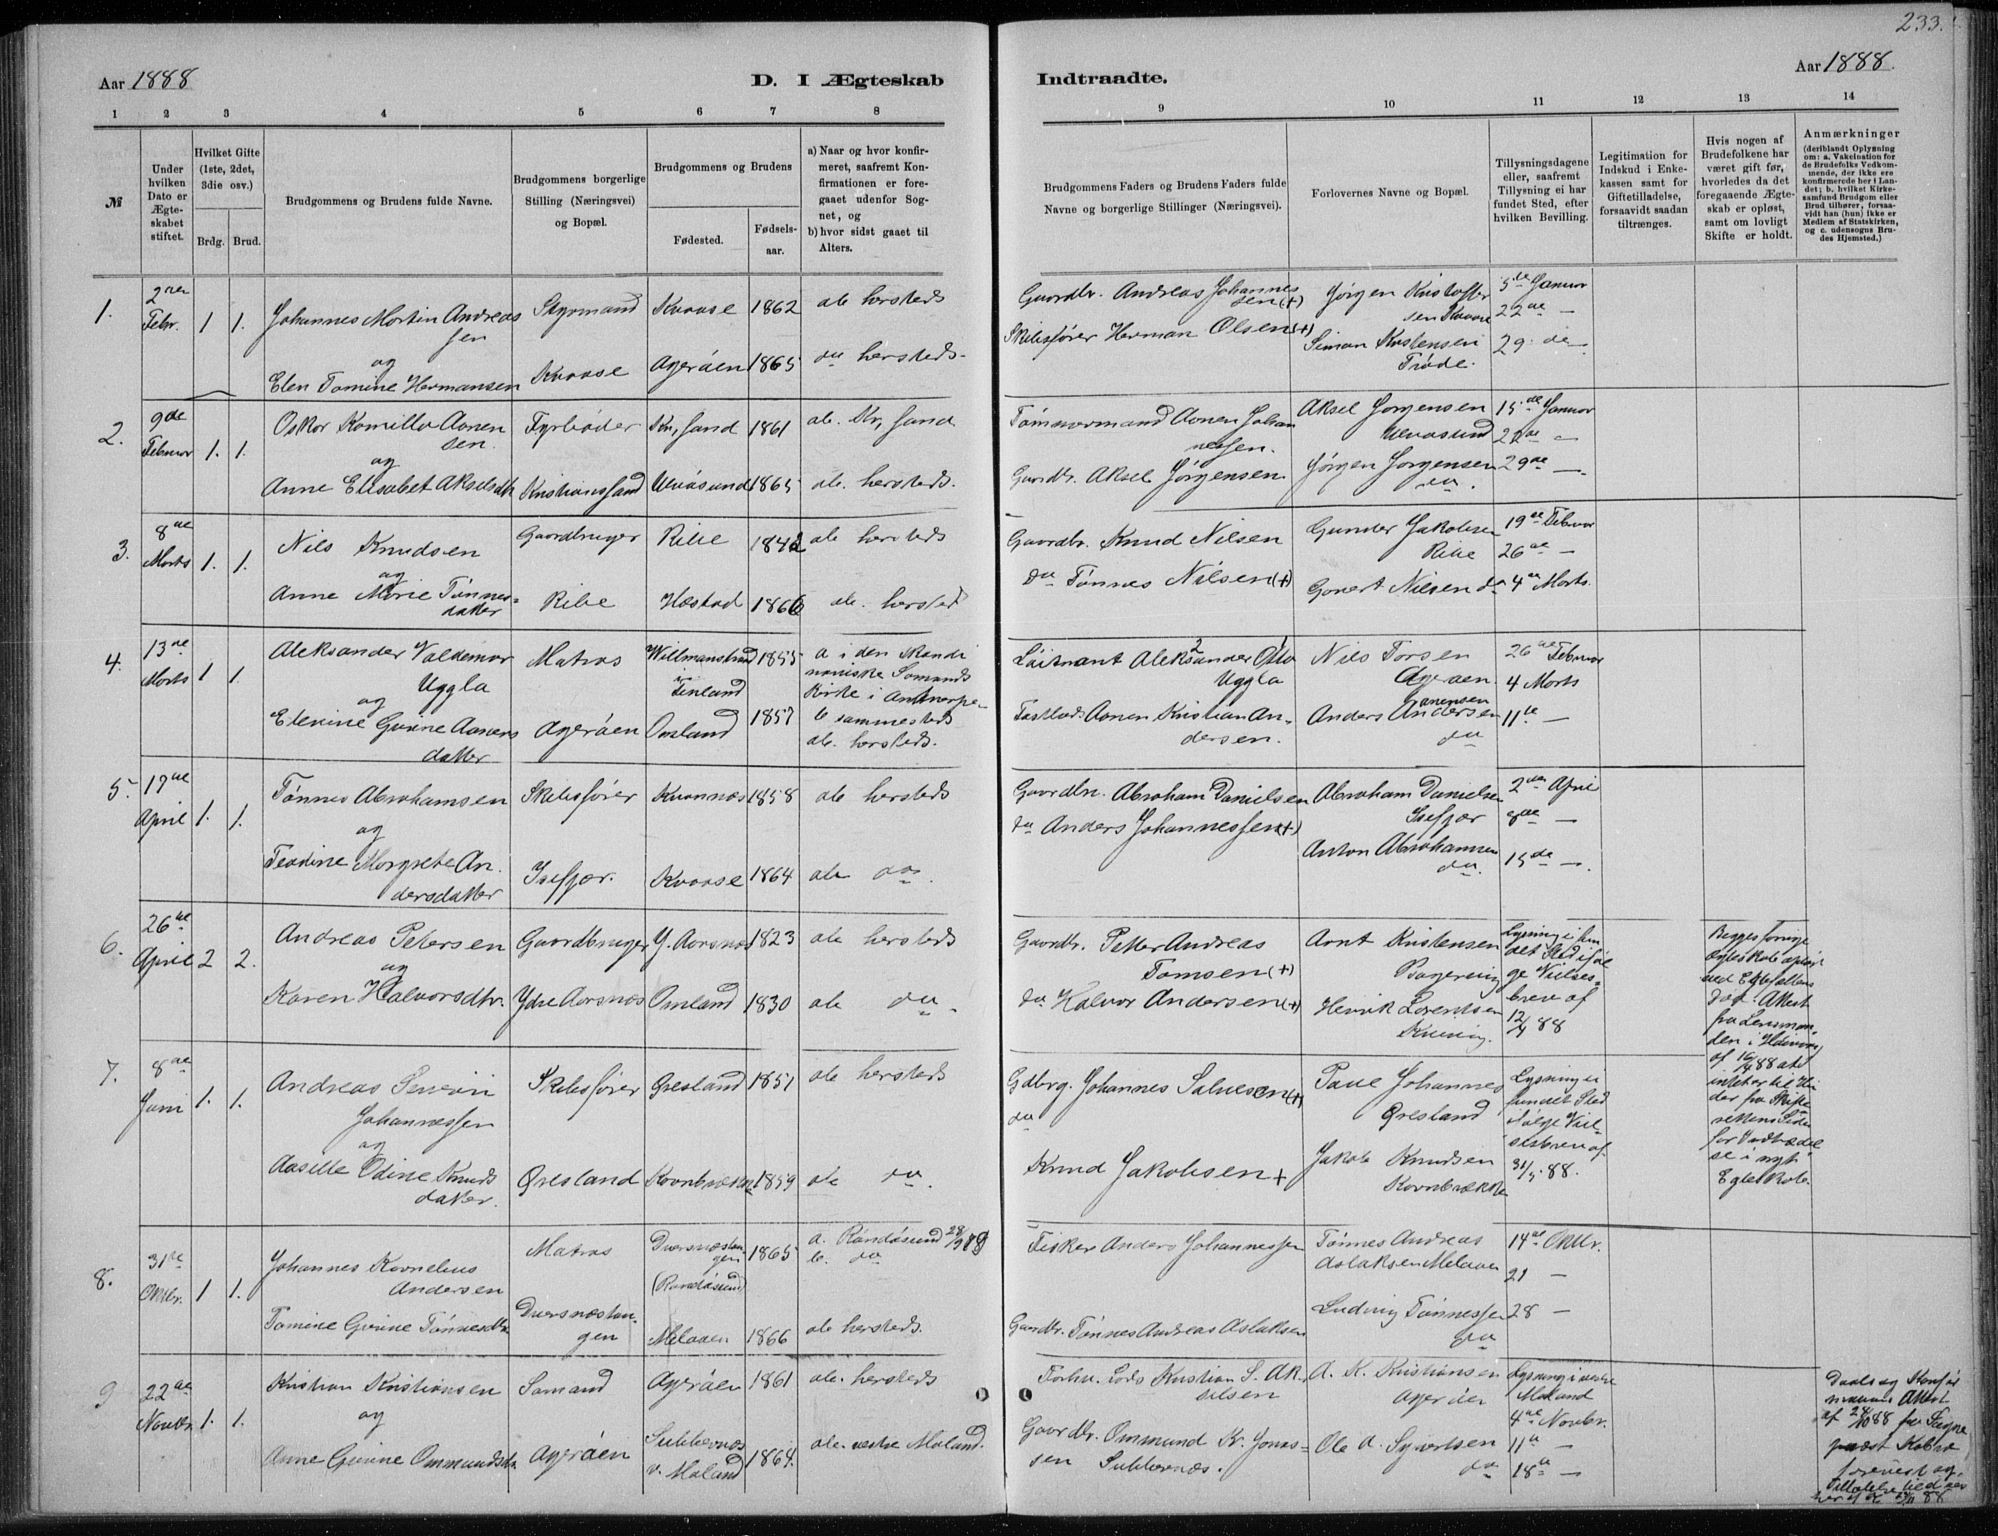 233.
Aar 1888
D. I Ægteskab
Indtraadte.
Aar 1888.
1 2 3 4 5 6 7 8
9 10 11 12 13 14
№
Under hvilken Dato er Ægteskabet stiftet.
Hvilket Gifte (1ste, 2det, 3die osv.)
Brdg. Brud.
Brudgommens og Brudens fulde Navne.
Brudgommens borgerlige Stilling (Næringsvei) og Bopæl.
Brudgommens og Brudens
Fødested.
Fødselsaar.
a) Naar og hvor konfirmeret, saafremt Konfirmationen er foregaaet udenfor Sognet, og
b) hvor sidst gaaet til Alters.
Brudgommens Faders og Brudens Faders fulde Navne og borgerlige Stillinger (Næringsvei).
Forlovernes Navne og Bopæl.
Tillysningsdagene eller, saafremt Tillysning ei har fundet Sted, efter hvilken Bevilling.
Legitimation for Indskud i Enkekassen samt for Giftetilladelse, forsaavidt saadan tiltrænges.
Hvis nogen af Brudefolkene har været gift før, hvorledes da det foregaaende Ægteskab er opløst, samt om lovligt Skifte er holdt.
Anmærkninger
(deriblandt Oplysning om: a. Vakcination for de Brudefolks Vedkommende, der ikke ere konfirmerede her i Landet; b. hvilket Kirkesamfund Brudgom eller Brud tilhører, forsaavidt han (hun) ikke er Medlem af Statskirken, og c. udensogns Brudes Hjemsted.)
1. 2den Febr. 1 1.
Johannes Martin Andreassen
og
Elen Tomine Hermansen
Styrmand
Kvaase
Kvaase 1862
Agerøen 1865
ab hersteds
da hersteds.
Gaardbr. Andreas Johannessen (+)
Skibsfører Herman Olsen (+)
Jørgen Kristoffersen Kvaase
Simon Kristensen Trøde.
5te Januar
22de —
29. de —
2. 9de Februar 1. 1.
Oskar Kamillo Aanensen.
og
Anne Elisabet Akselsdtr
Fyrbøder
Kristianssand
Kr,sand 1861
Ulvøsund 1865
ab. Kr, sand
ab. hersteds.
Tømmermand Aanen Johannessen.
Gaardbr. Aksel Jørgensen
Aksel Jørgensen
Ulvøsund
Jørgen Jørgensen
da.
15de Januar
22de —
29de —
3. 8de Marts 1. 1.
Nils Knudsen
og
Anne Marie Tønnesdatter
Gaardbruger
Ribe
Ribe 1842
Hæstad 1866
ab hersteds
ab. hersted
Gaardbr. Knud Nilsen
da Tønnes Nilsen (+)
Gunder Jakobsen
Ribe
Govert Nilsen da
19de Februar
26de —
4de Marts.
4. 13de Marts 1 1.
Aleksander Valdemar Uggla
og
Elevine Gurine Aanensdatter
Matros
Agerøen
Willmanstrand Finland 1855
Omland 1857
a i den skandinaviske Sømands Kirke i Antwerpe-
b sammesteds
ab. hersteds.
Løitnant Aleksander Otto Uggla
Fastlods Aanen Kristian Andersen.
Nils Torsen
Agerøen.
Anders Aanensen Andersen
da
26de Februar
4 Marts
11te —
5. 17de April 1. 1.
Tønnes Abrahamsen
og
Teodine Margrete Andersdatter
Skibsfører
Isefjær.
Kvannes 1858
Kvaase 1864
ab hersteds
ab da.
Gaardbr. Abraham Danielsen
da Anders Johannessen (+)
Abraham Danielsen
Isefjær
Anton Abrahamsen
da.
2den April
8de —
15de —.
6. 26de April 2 2.
Andreas Petersen
og
Karen Halvorsdtr.
Gaardbruger
Ydre Aarsnes
Y. Aarsnes 1823
Omland 1830
ab hersteds
ab da.
Gaardbr. Petter Andreas Tomsen (+)
da Halvor Andersen (+)
Arnt Kristensen
Henrik Lorentsen
Lysning ei fundet Sted ifølge Vielsesbrev af
12/4 88
Begges forrige Egteskab opløst ved Egtefællens Død. Attest fra Lensmanden i Høivaag af 16/4 88 at intet er til Hinder fra Skifterettens Side for Indtrædelse i nyt Egteskab.
7. 8de Juni 1. 1.
Andreas Severin Johannessen
og
Aasille Odine Knudsdatter.
Skibsfører
Øresland
Øresland 1851
Kornbrække 1859
ab hersteds
ab da.
Gdbrg. Johannes Salvesen (+)
da
Knud Jakobsen +
Paul Johannes
Øresland
Jakob Knudsen
Kornbrække
Lysning ei fundet Sted ifølge Vielsesbrev af
31/5 88.
8. 31te Oktbr. 1 1.
Johannes Kornelius Andersen
Tomine Gurine Tønnesdtr.
Matros
Dversnestangen
Dversnestangen (Randøsund) 1865
Melaaen 1866
a. Randøsund 28/9 79
b. da
ab hersteds.
Fisker Anders Johannessen
Gaardbr. Tønnes Andreas Aslaksen
Tønnes Andreas Aslaksen Melaaen
Ludvig Tønnessen
da
14de Oktbr.
21 —
28 —
9 22de Novbr. 1. 1.
Kristian Kristiansen
og
Anne Gurine Ommundsdtr.
Sømand
Agerøen
Agerøen 1861
Subbernes v. Moland 1864.
ab. hersteds
ab. vestre Moland.
Forhv. Lods Kristian S. Akselsen
Gaardbr. Ommund Kr. Jonassen Subbernes.
A. K. Kristiansen
Agerøen
Ole A. Syvertsen
da
Lysning i vestre Moland
4de Novbr.
11te —
18de —